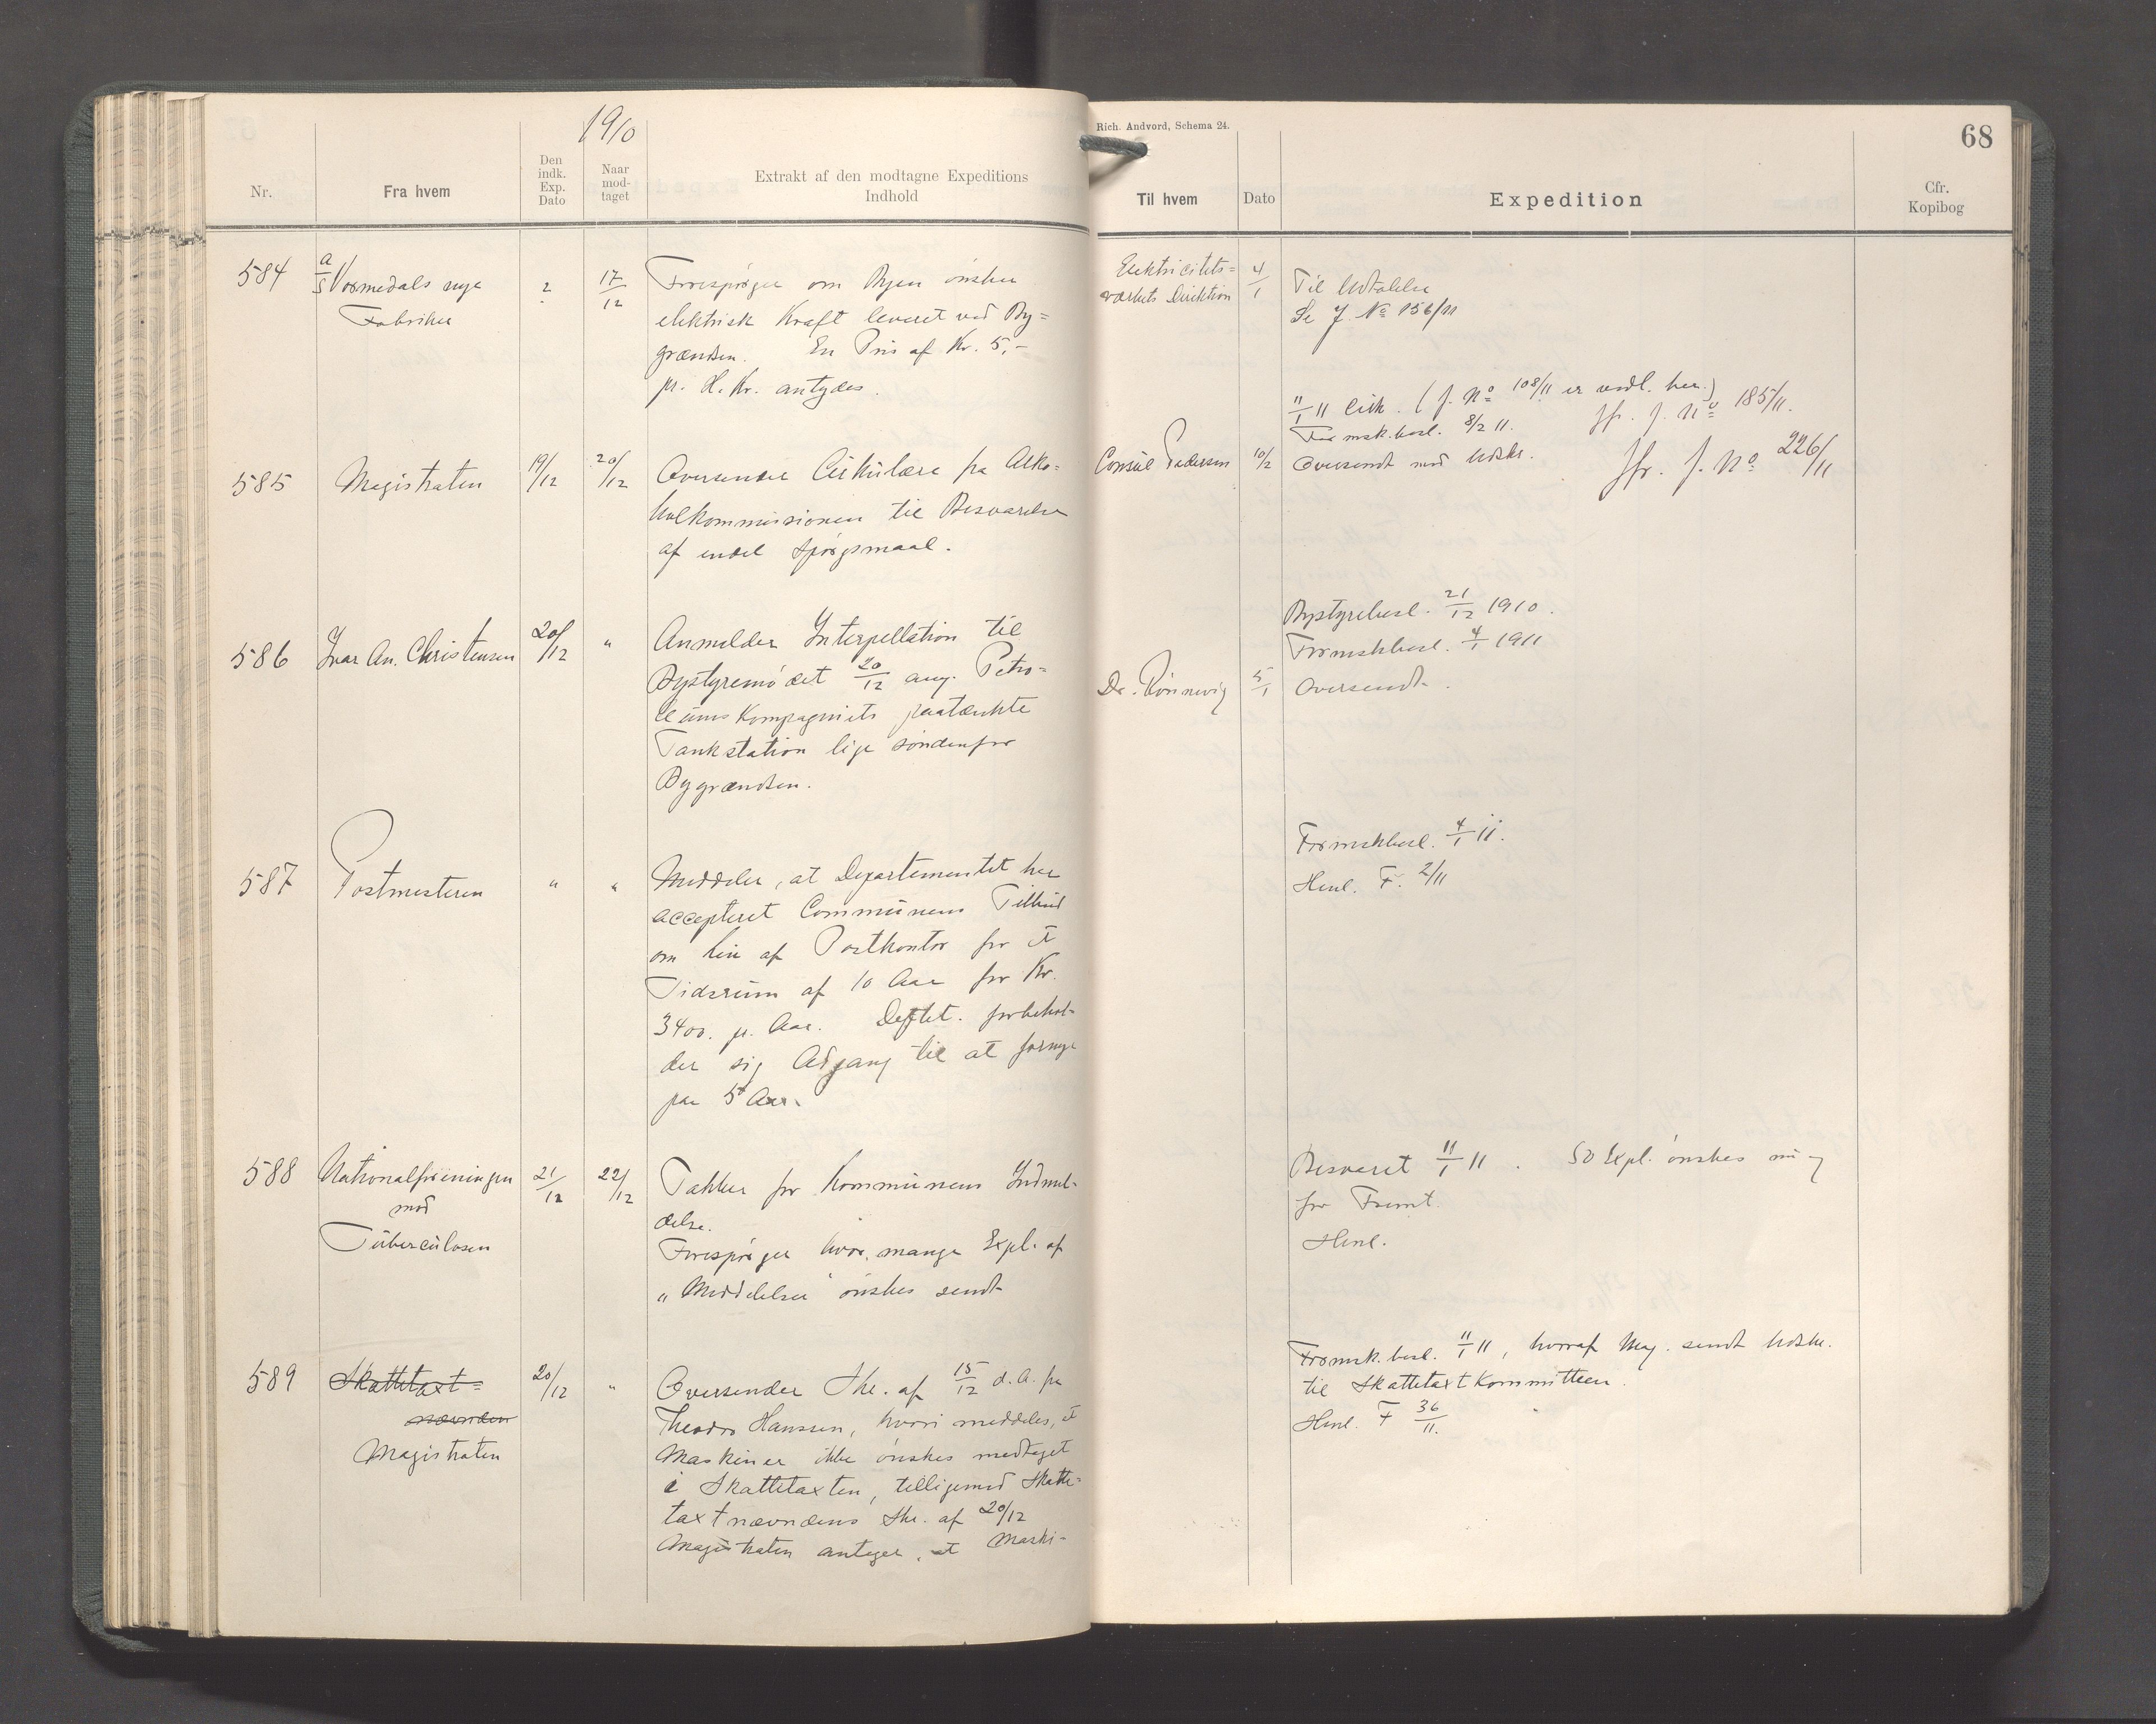 1910
Nr.
Fra hvem
Den indk. Exp. Dato
Naar mod-taget
Extrakt af den modtagne Expeditions
Indhold
584
A/S Vormedals nye
Fabriker
?
17/12
Forespørger om Byen ønsker
elektrisk Kraft leveret ved By=
grændsen. En Pris af Kr. 5,-
pr. H. Kr. antydes.
585
Magistraten
19/12
20/12
Oversender Cirkulære fra Alko=
holkommissionen til Besvarelse
af endel Spørgsmaal.
586
Ivar An. Christensen
20/12
"
Anmelder Interpellation til
Bystyremødet 20/12 ang. Petro=
leumskompagniets paatænkte
Tankstation lige søndenfor
Bygrændsen.
587
Postmesteren
"
"
Meddeler, at Departementet har
accepteret Communens Tilbud
om Leie af Postkontor for et
Tidsrum af 10 Aar for Kr.
3400. pr. Aar. Deptet. forbehol-
der sig Adgang til at fornye
paa 5 Aar.
588
Nationalforeningen
mod
Tuberculosen
21/12
22/12
Takker for Kommunens Indmel-
delse.
Forespørger hvor mange Expl. af
"Meddelelser" ønskes sendt
589
Skattetaxt=
nævnden
Magistraten
20/12
"
Oversender Skr. af 15/12 d.A. fra
Theodor Hanssen, hvori meddeles, at
Maskiner ikke ønskes medtaget
i Skattetaxten, telligemed Skatte=
taxtnævndens Skr. af 20/12
Magistraten antager, at Maski-
Rich. Andvord, Schema 24.
68
Til hvem
Dato
Expedition
Cfr.
Kopibog
Elektricitets=
værkets Direktion
4/1
Til Udtalelse
Se J. No 156/11
11/1 11 Cirk. (J. No 108/11 er vedl. her.)
Formsk.besl. 8/2 11. Jfr. J. No 185/11.
Consul Pedersen
10/2
Oversendt med Udskr.
Jfr. J. No 226/11
Bystyrebesl. 21/12 1910.
Formskbesl. 4/1 1911
Dr. Rønnevig
5/1
Oversendt.
Formskbesl. 4/1 11.
Henl. F. 2/11
Besvaret 11/1 11. 50 Expl. ønskes nu og
for Fremt.
Henl.
Formsk.besl. 11/1 11, hvoraf Mag. sendt Udskr.
til Skattetaxtkommitteen.
Henl. F 36/11.